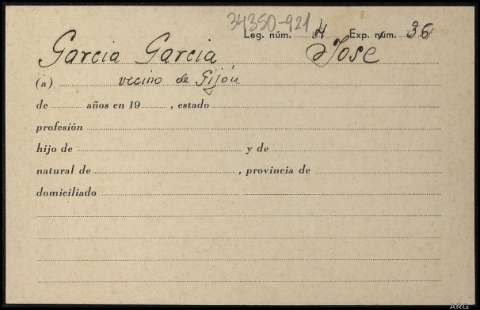 34350-921
Leg. núm. 4 Exp. núm. 36
Garcia Garcia José
(a) vecino de Gijón
de años en 19 , estado
profesión
hijo de y de
natural de , provincia de
domiciliado
ARG